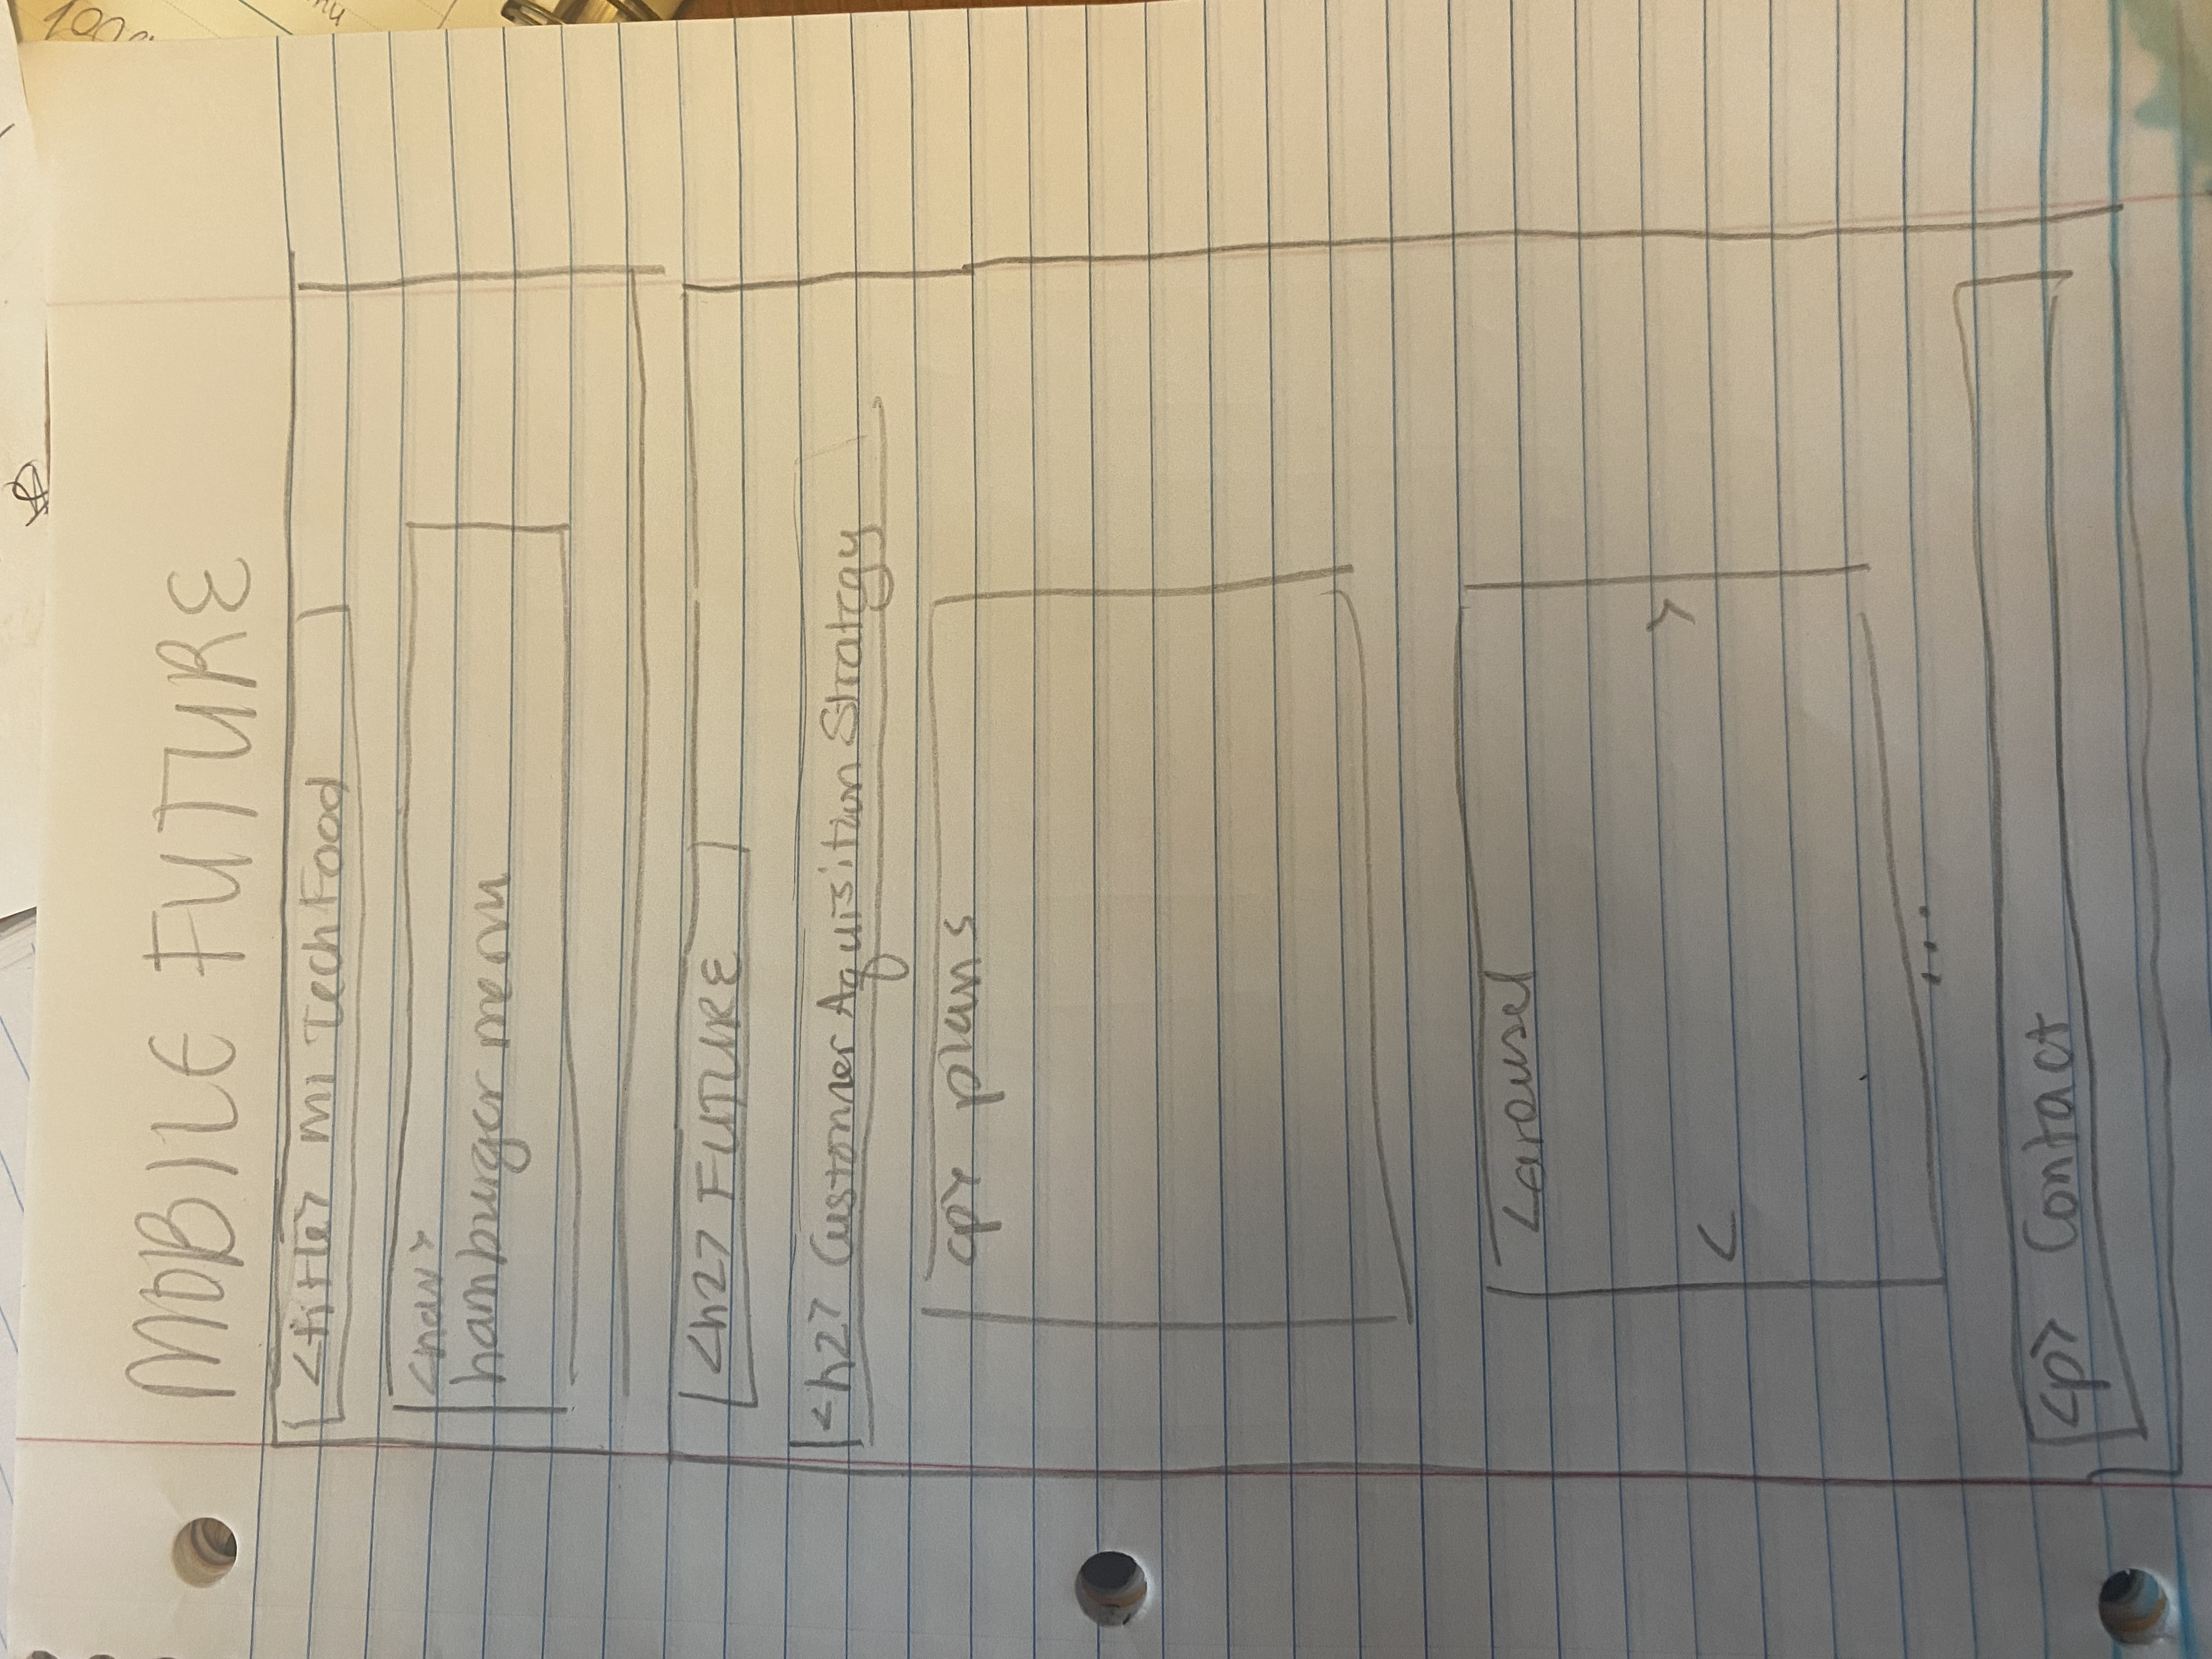 MOBILE FUTURE
<title> Mi Tech Food
<nav>
hamburger menu
<h2> FUTURE
<h2> Customer Aquisition Strategy
<p> plans
Carousel
< >
...
<p> Contact